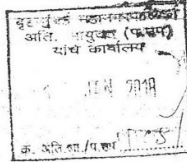 बृहन्मुंबई महानगरपालिका
अति. आयुक्त (प.उप)
यांचे कार्यालय
JUN 2018
क. अति.आ./प.उप